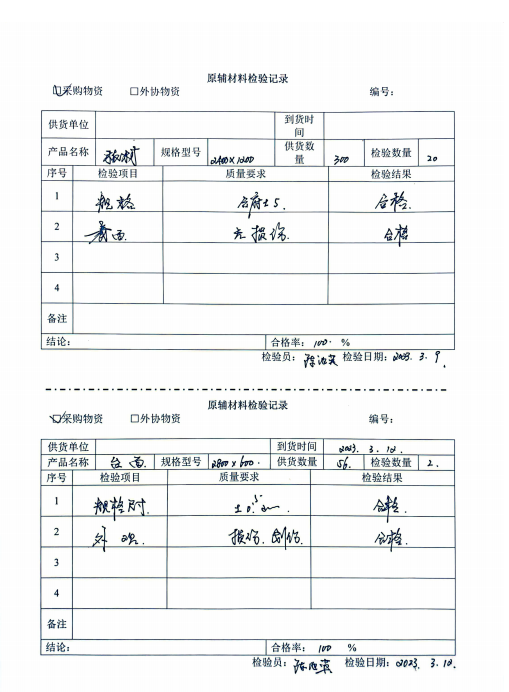 原辅材料检验记录
☑采购物资 □外协物资 编号：
供货单位 到货时间
产品名称 板材 规格型号 2400×1200 供货数量 300 检验数量 20
序号 检验项目 质量要求 检验结果
1 规格 ±5. 合格.
2 表面 无损伤. 合格
3
4
备注
结论： 合格率：100. %
检验员： 检验日期：2023. 3. 9.
原辅材料检验记录
☑采购物资 □外协物资 编号：
供货单位 到货时间 2023. 3. 12.
产品名称 台面. 规格型号 2800×600. 供货数量 56. 检验数量 2.
序号 检验项目 质量要求 检验结果
1 规格尺寸. 合格.
2 外观. 损伤. 划伤. 合格.
3
4
备注
结论： 合格率：100 %
检验员： 检验日期：2023. 3. 12.